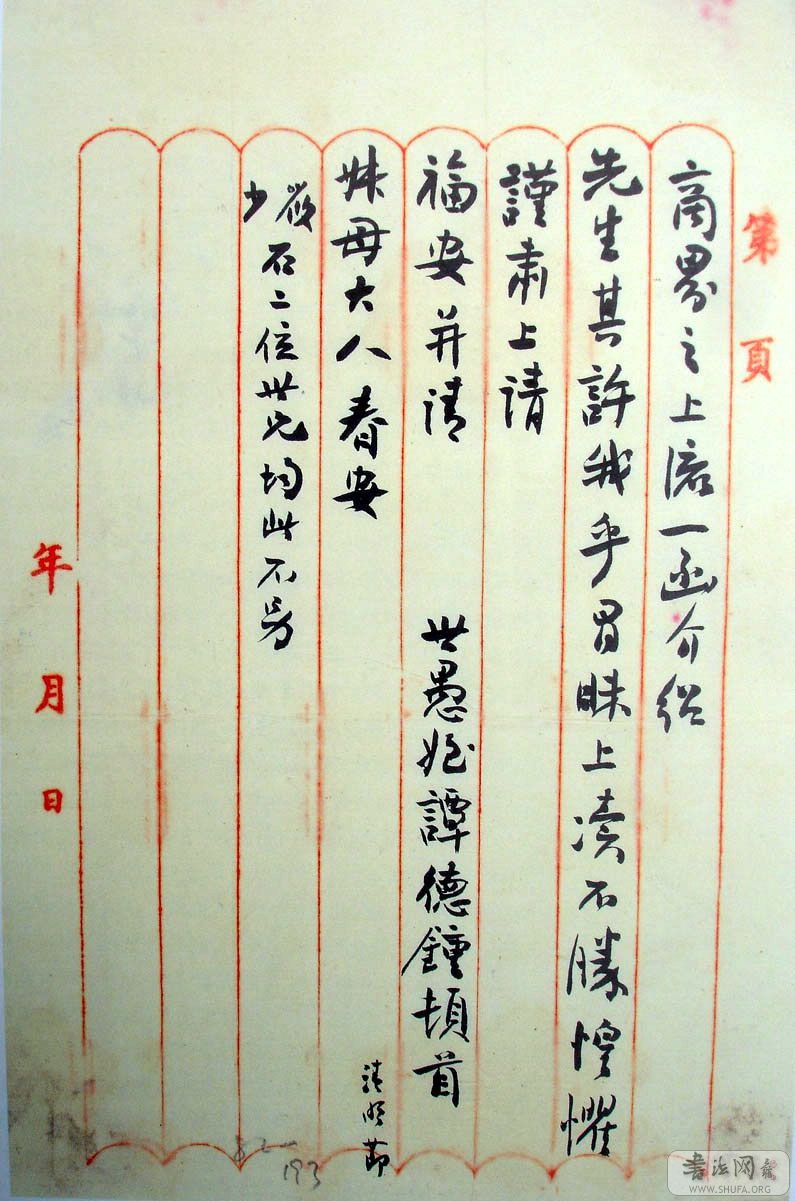 第 頁
商界之上流一函介紹
先生其許我乎冒昧上凟不勝惶懼
謹肅上請
福安并請
世愚姪譚德鍾頓首
母大人春安
清明節
筱少石二位世兄均此不另
年 月 日
193
書法网
WWW.SHUFA.ORG